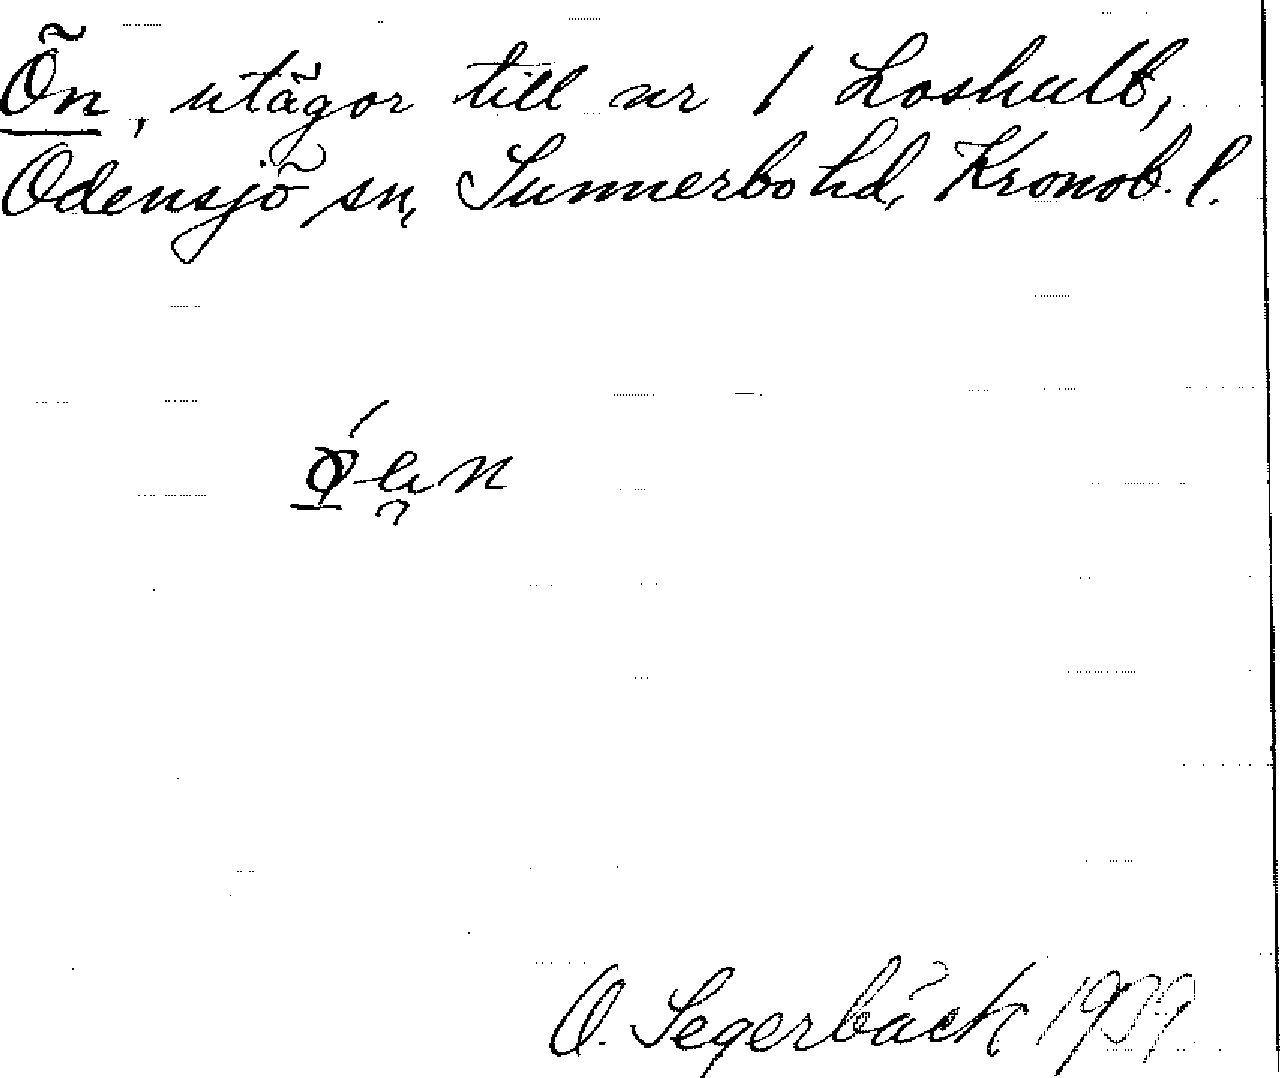 Ön, utägor till nr 1 Loshult,
Odensjö sn, Sunnerbo hd, Kronob. l.
O. Segerbäck 1939